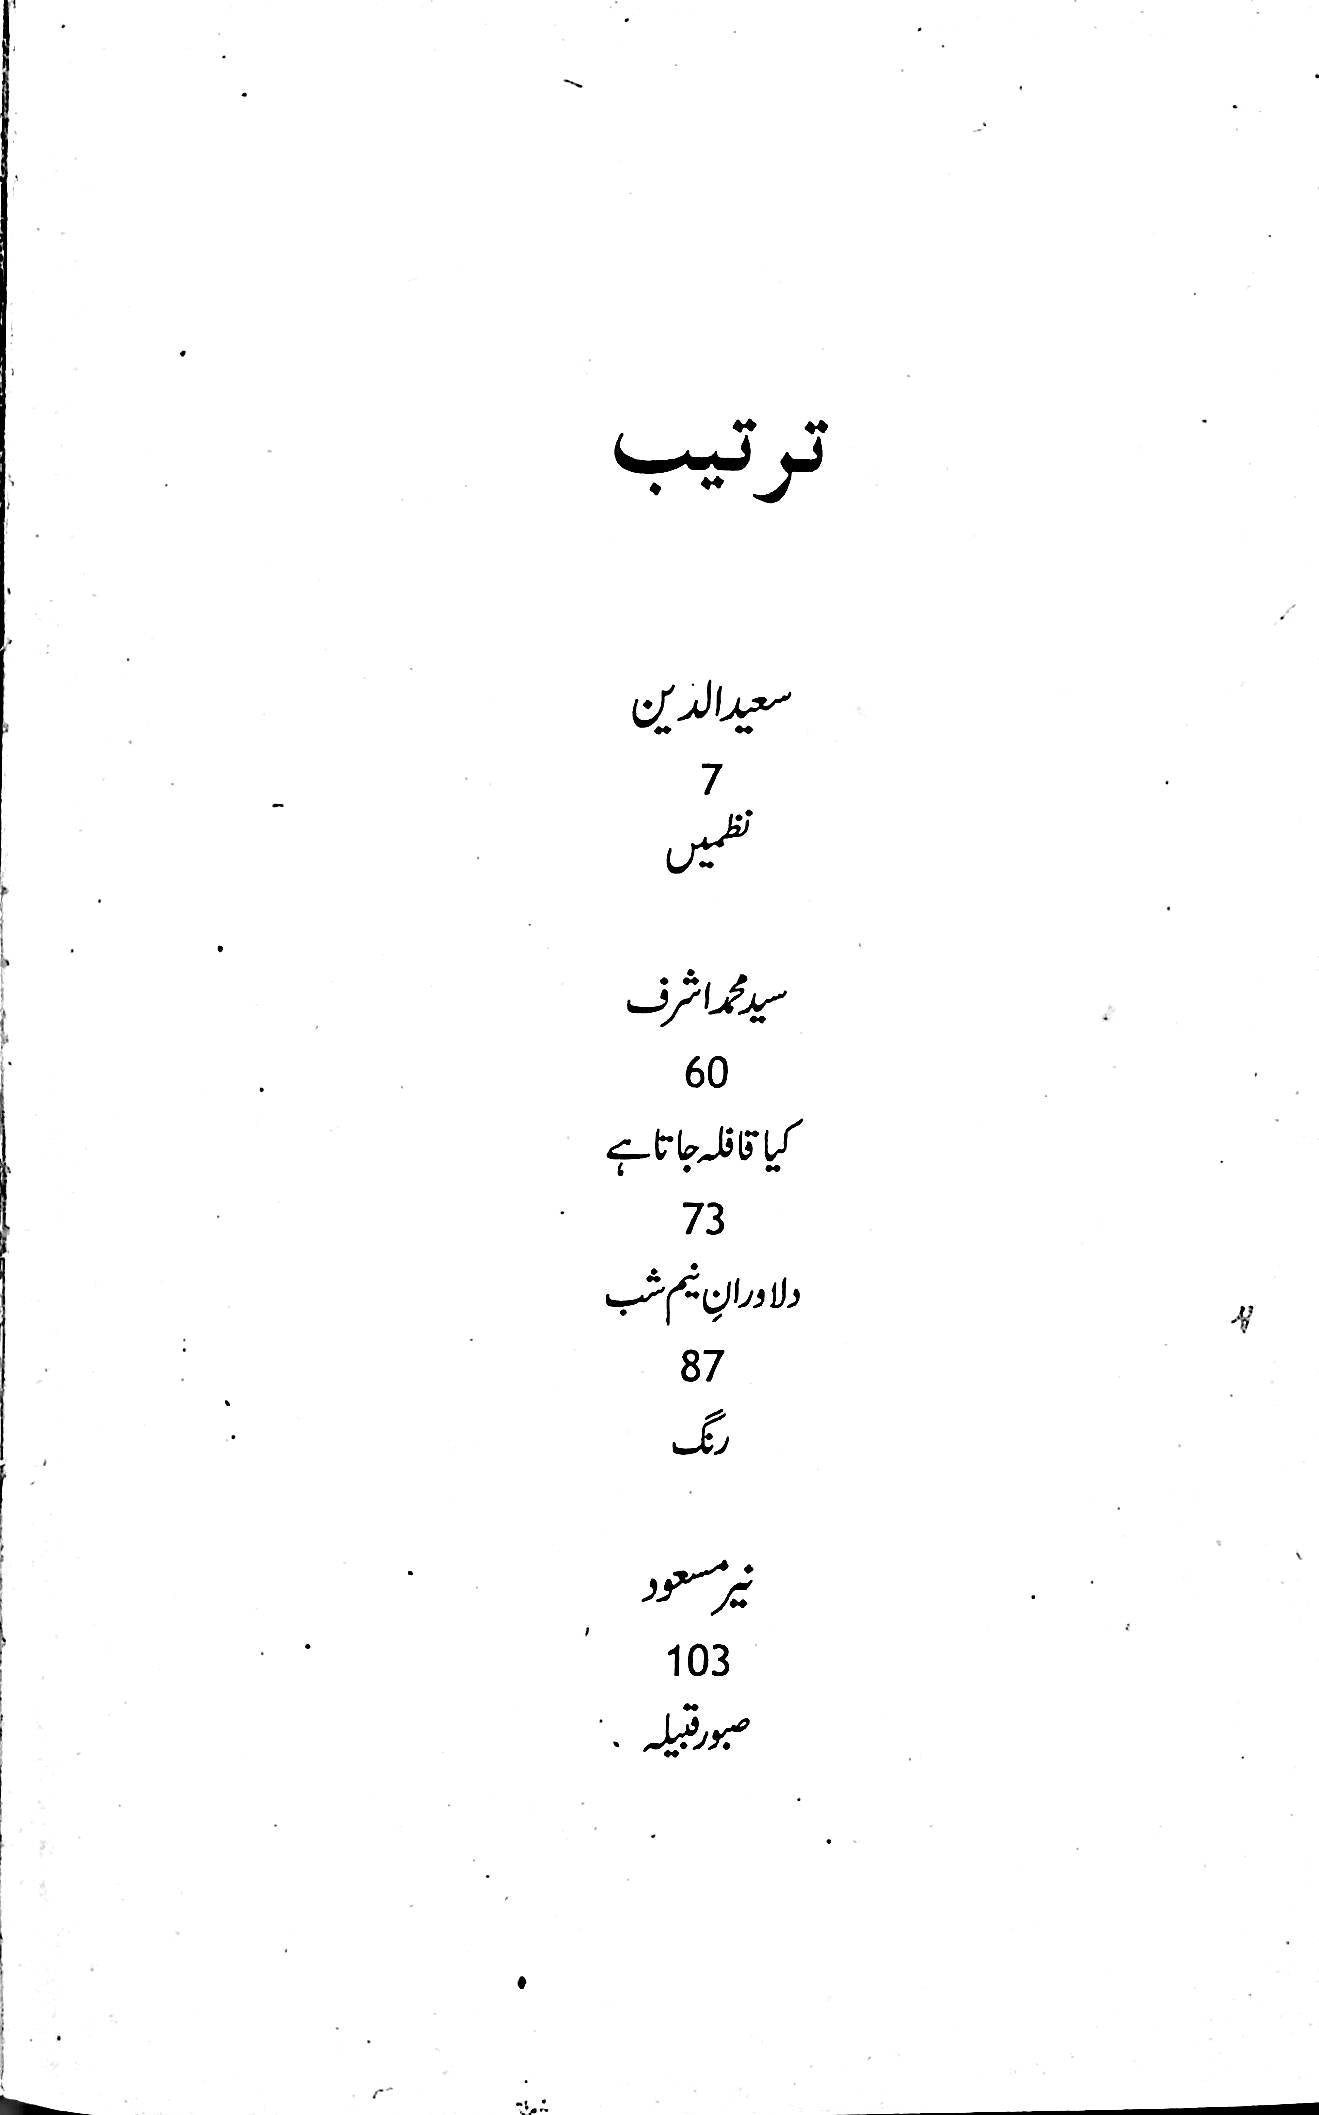 ترتیب
سعیدالدین
7
نظمیں
سید محمد اشرف
60
کیا قافلہ جاتا ہے
73
دلاورانِ نیم شب
87
رنگ
نیر مسعود
103
صبور قبیلہ